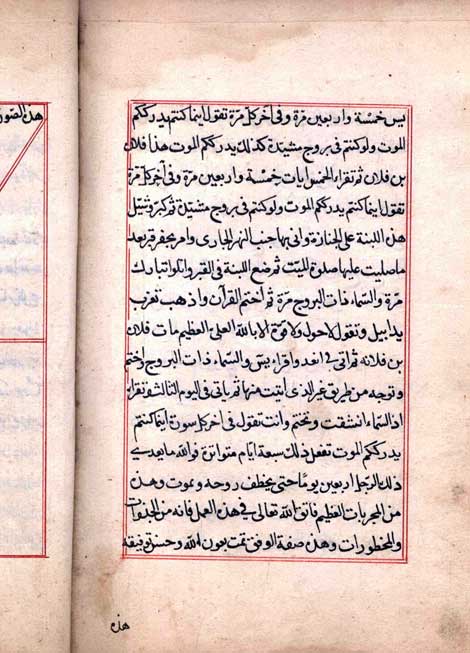 يس خمسة واربعين مرّة وفى آخر كل مرّة تقول اينما كنتم يدرككم
الموت ولو كنتم فى بروج مشيّدة كذلك يدرككم الموت هذا فلان
بن فلان ثم تقراء الخمس ايات خمسة واربعين مرّة وفى آخر كل مرّة
تقول اينما كنتم يدرككم الموت ولو كنتم فى بروج مشيّدة ثم كبر وشيّل
هذه اللبنة على الجنازة واتى بها جنب النهر الجارى وامر بحفر قبر بعد
ما صليت عليها صلوة الميّت ثم ضع اللبنة فى القبر واتلوا تبارك
مرّة والسّماء ذات البروج مرّة ثم اختم القرآن واذهب تغرب
يدابيل وتقول لا حول ولا قوة الا بالله العلى العظيم مات فلان
بن فلانه ثم اتى فى الغد واقراء يس والسّماء ذات البروج واختم
وتوجه من طريق غير الذى اتيت منها ثم ياتى فى اليوم الثالث وتقراء
اذا السّماء انشقت وتختم وانت تقول فى آخر كل سورة اينما كنتم
يدرككم الموت تفعل ذلك سبعة ايّام متواترة فوالله ما يعدى
ذلك الرجل اربعين يومًا حتى يخطف روحه ويموت وهذه
من المجربات العظيم فاتق الله تعالى فى هذه العمل فانه من
والمحظورات وهذه صفة الوفق تمت بعون الله وحسن توفيقه
هذه
هذه الصور